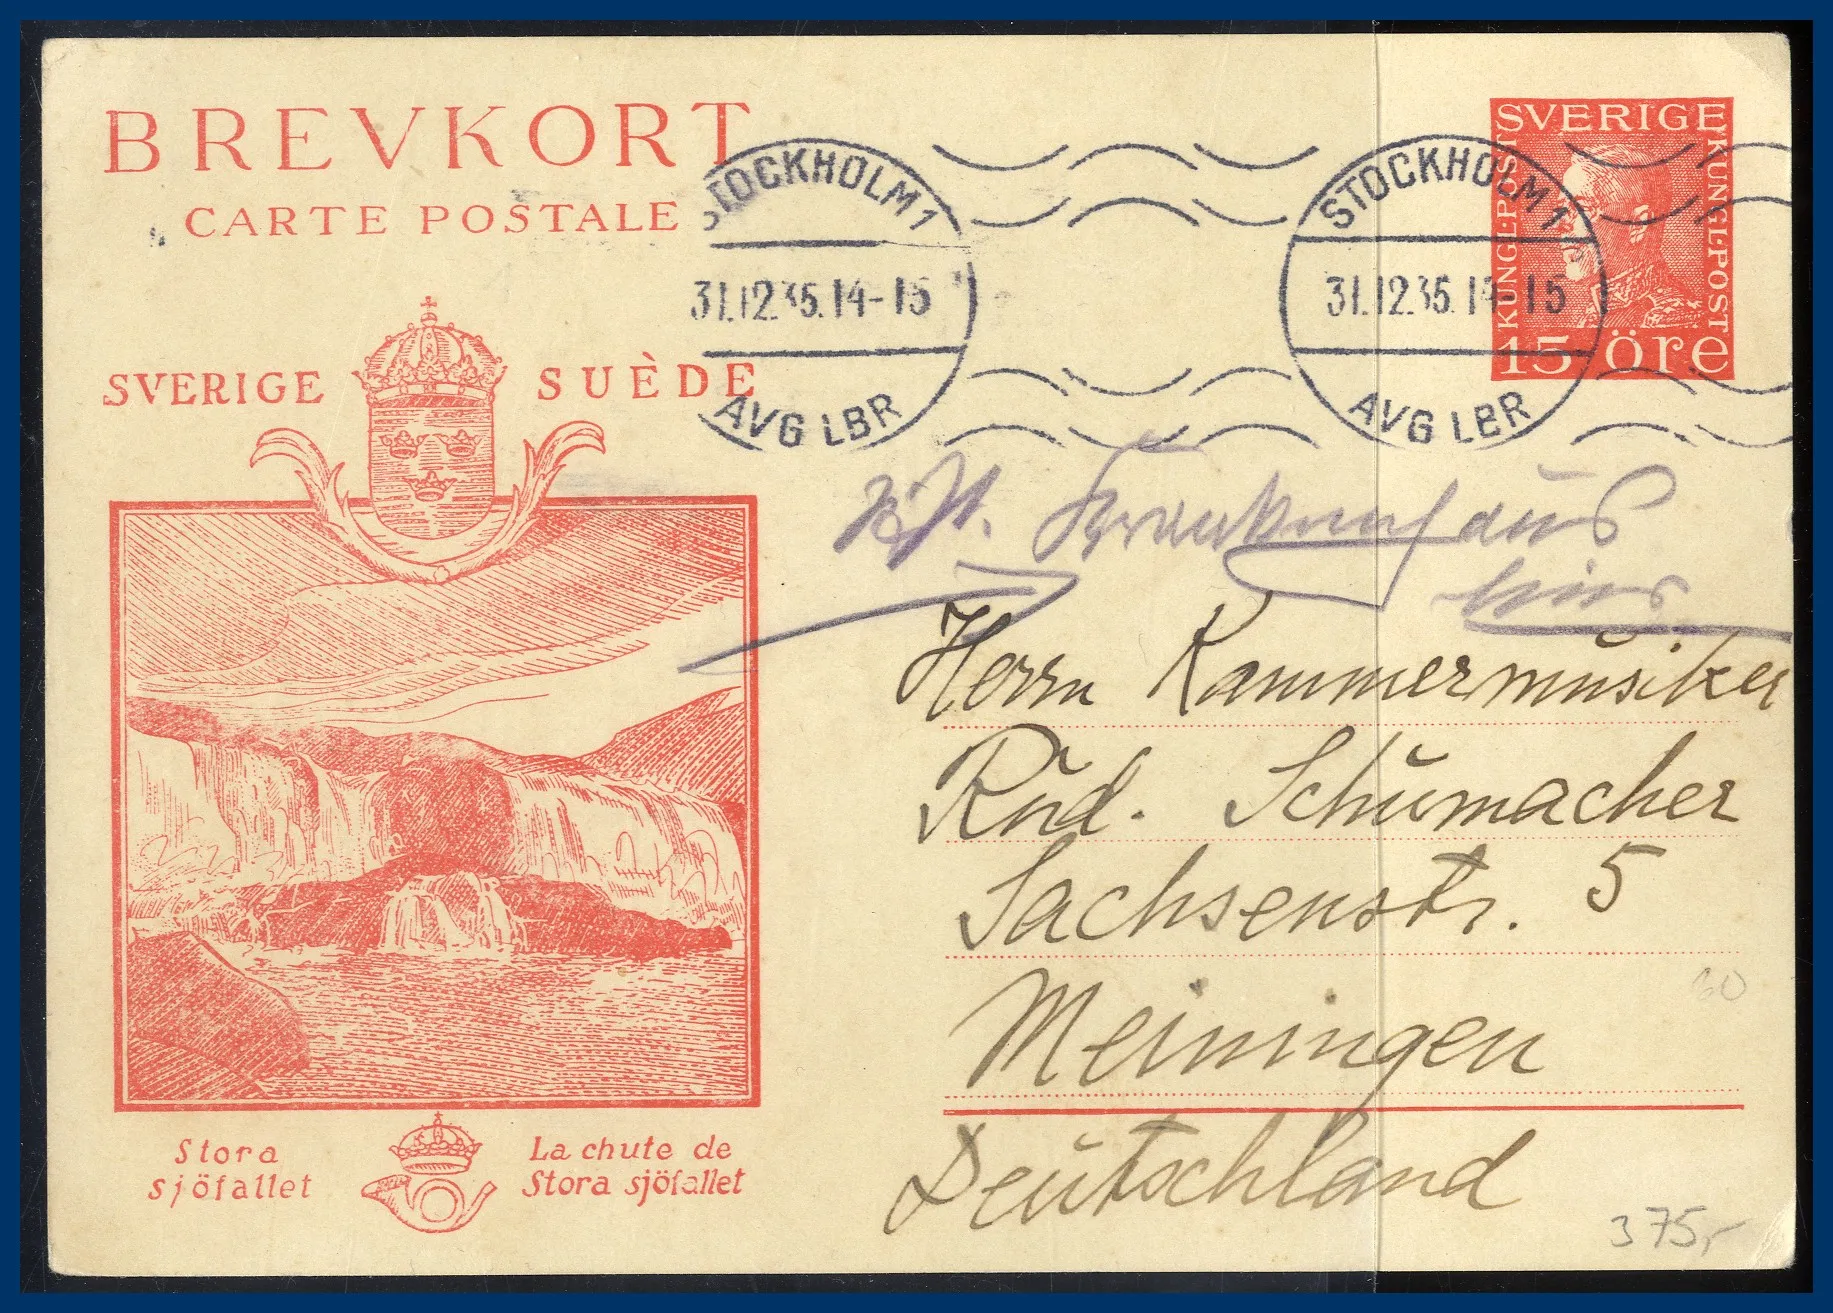 BREVKORT
CARTE POSTALE
SVERIGE SUÈDE
STOCKHOLM 1
31.12.35.14-15
AVG LBR
STOCKHOLM 1
31.12.35.14-15
AVG LBR
SVERIGE
KUNGL·POST
KUNGL·POST
15 öre
Krankenhaus
hier
Herrn Kammermusiker
Rud. Schumacher
Sachsenstr. 5
Meiningen
Deutschland
60
375,-
Stora
sjöfallet
La chute de
Stora sjöfallet